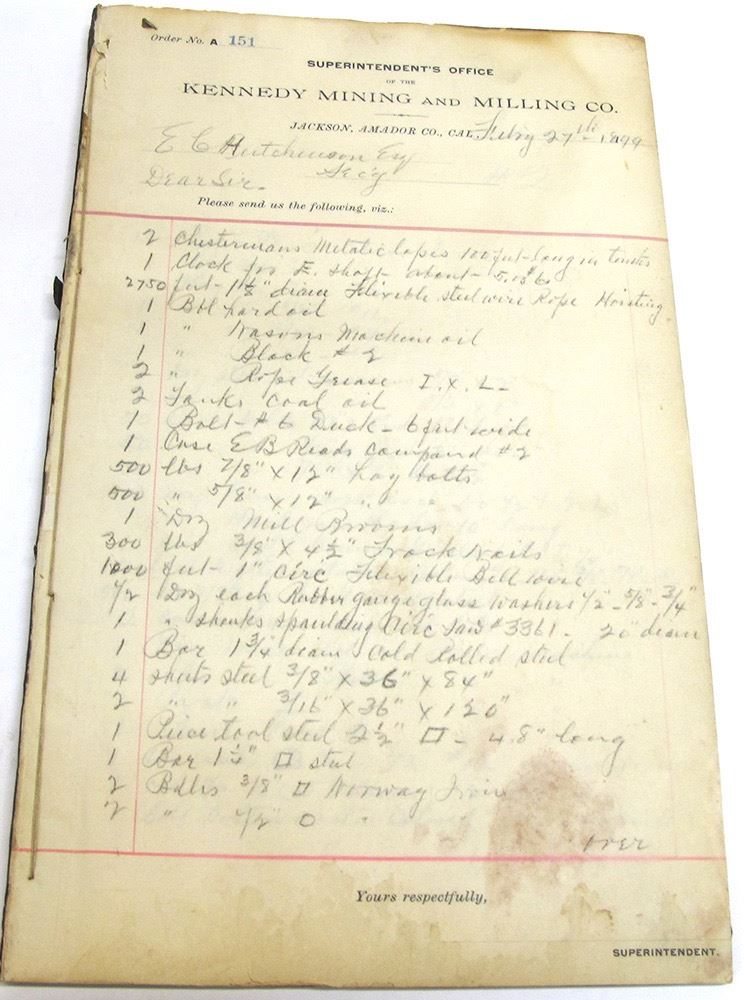 Order No. A 151
SUPERINTENDENT'S OFFICE
OF THE
KENNEDY MINING AND MILLING CO.
JACKSON, AMADOR CO., CAL. Feby 27th 1899
E C Hutchinson Esq
Secy
Dear Sir.
Please send us the following, viz.:
2 Chestermans Metalic tapes 100 feet long in tenths
1 Clock for E. Shaft about
2750 feet 1 1/8" diam Flexible steel wire Rope Hoisting.
1 Bbl hard oil
1 " Nasons Machine oil
1 " Black # 2
2 " Rope Grease I.X.L-
2 Tanks coal oil
1 Bolt # 6 Duck - 6 feet wide
1 Case E B Reads Compound # 2
500 lbs 7/8" X 12" Lag bolts
500 " 5/8" X 12" "
1 Doz Mill Brooms
300 lbs 3/8" X 4 1/2" Track Nails
1000 feet 1" Circ Flexible Bell wire
1/2 Doz each Rubber gauge glass washers 1/2" - 5/8 - 3/4"
1 " shanks Spaulding Circ Saw # 3361 - 20" diam
1 Bar 1 3/4" diam Cold Rolled steel
4 sheets steel 3/8" X 36" X 84"
2 " " 3/16" X 36" X 120"
1 Piece tool steel 2 1/2" □ - 48" long
1 Bar 1 1/4" □ steel
2 Bdls 3/8" □ Norway Iron
2 " 1/2" O "
over
Yours respectfully,
SUPERINTENDENT.